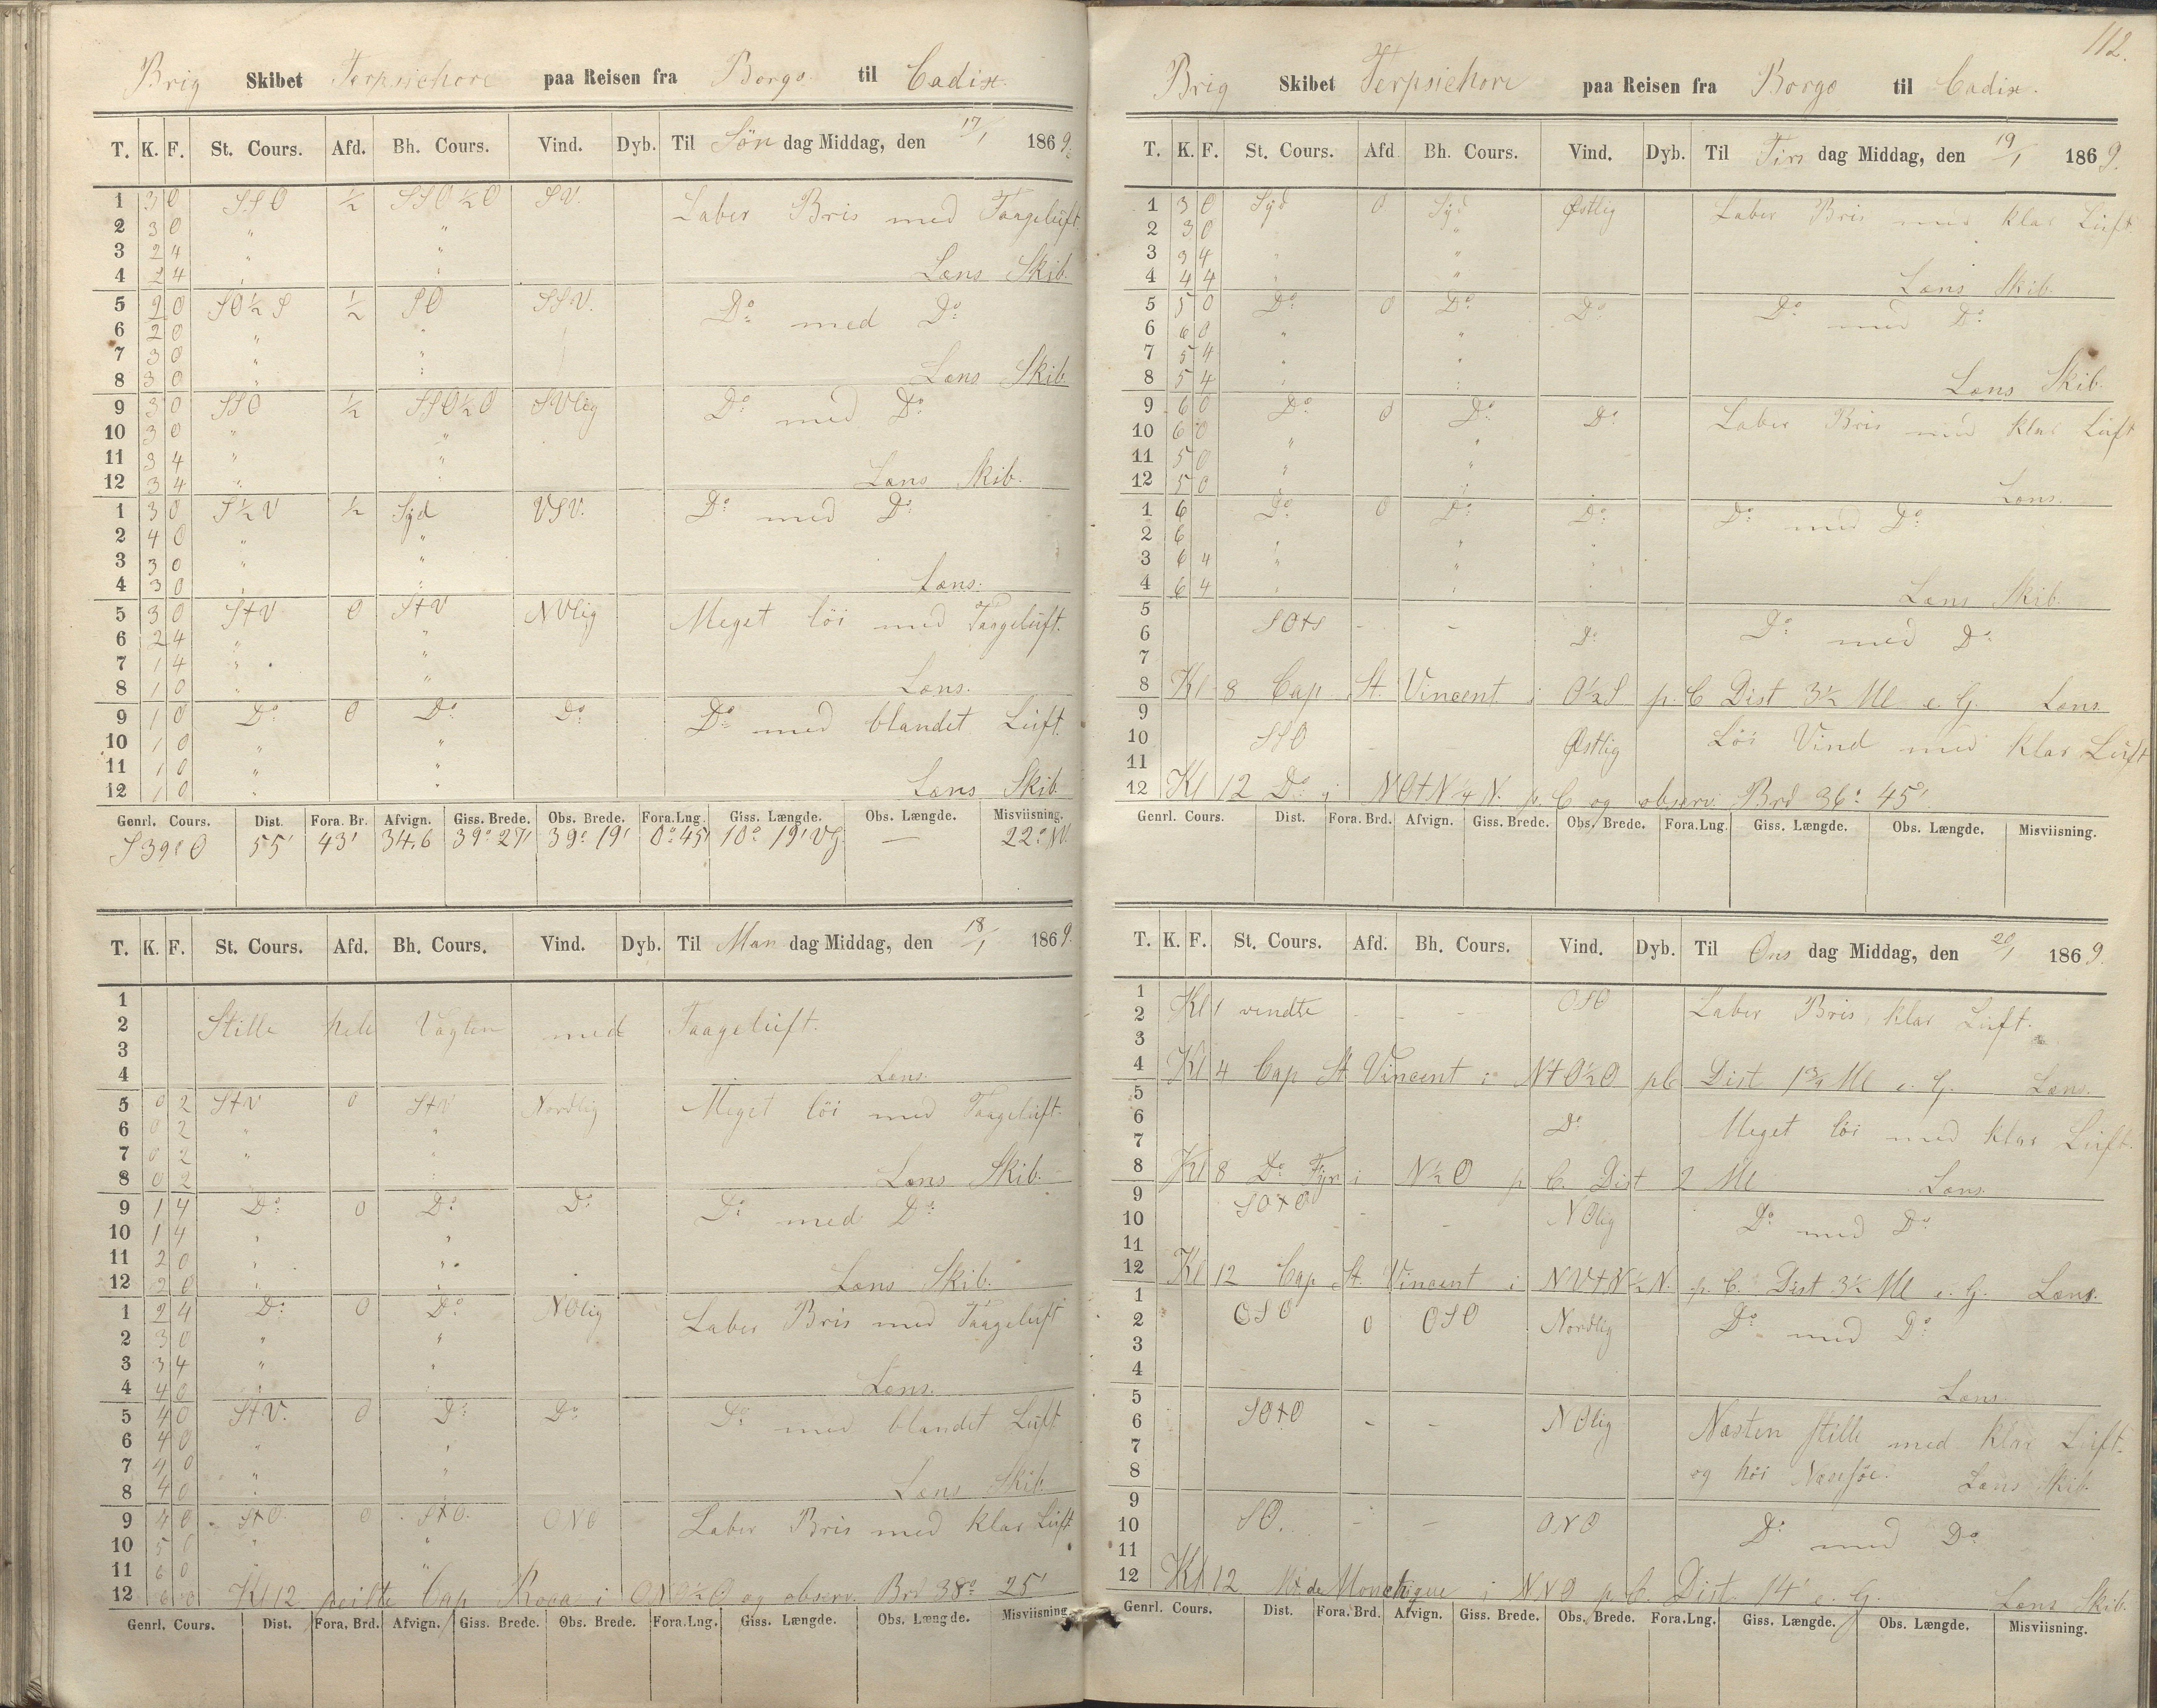 Brig Skibet Terpsichore paa Reisen fra Borgo til Cadix.
T. K. F. St. Cours. Afd. Bh. Cours. Vind. Dyb. Til Søn dag Middag, den 17/1 1869.
1 3 0 SSO ½ SSO½O SV. Laber Bris med Taageluft.
2 3 0 " "
3 2 4 " "
4 2 4 " " Læns Skib.
5 2 0 SO½S ½ SO SSV. Do med Do
6 2 0 " "
7 3 0 " "
8 3 0 " " Læns Skib.
9 3 0 SSO ½ SSO½O SVlig Do med Do
10 3 0 " "
11 3 4 " "
12 3 4 " " Læns Skib.
1 3 0 S½V ½ Syd VSV. Do med Do
2 4 0 " "
3 3 0 " "
4 3 0 " " Læns.
5 3 0 StV 0 StV NVlig Meget löi med Taageluft.
6 2 4 " "
7 1 4 " "
8 1 0 " " Læns.
9 1 0 Do 0 Do Do Do med blandet Luft.
10 1 0 " "
11 1 0 " "
12 1 0 " " Læns Skib.
Genrl. Cours. Dist. Fora. Br. Afvign. Giss. Brede. Obs. Brede. Fora.Lng. Giss. Længde. Obs. Længde. Misviisning.
S 39° O 55' 43' 34,6 39° 27' 39° 19' 0° 45' 10° 19' Vg. — 22° NV.
T. K. F. St. Cours. Afd. Bh. Cours. Vind. Dyb. Til Man dag Middag, den 18/1 1869.
1
2 Stille hele Vagten med Taageluft.
3
4 Læns.
5 0 2 StV 0 StV Nordlig Meget löi med Taageluft.
6 0 2 " "
7 0 2 " "
8 0 2 " " Læns Skib.
9 1 4 Do 0 Do Do Do med Do
10 1 4 " "
11 2 0 " "
12 2 0 " " Læns Skib.
1 2 4 Do 0 Do NOlig Laber Bris med Taageluft
2 3 0 " "
3 3 4 " "
4 4 0 " " Læns.
5 4 0 StV. 0 Do Do Do med blandet Luft
6 4 0 " "
7 4 0 " "
8 4 0 " " Læns Skib.
9 4 0 StO. 0 StO. ONO Laber Bris med klar Luft
10 5 0 " "
11 6 0 " "
12 6 0 Kl 12 peilte Cap Roca i ONO½O og observ. Brd 38° 25'
Genrl. Cours. Dist. Fora. Brd. Afvign. Giss. Brede. Obs. Brede. Fora.Lng. Giss. Længde. Obs. Længde. Misviisning.
112.
Brig Skibet Terpsichore paa Reisen fra Borgo til Cadix.
T. K. F. St. Cours. Afd Bh. Cours. Vind. Dyb. Til Tirs dag Middag, den 19/1 1869.
1 3 0 Syd 0 Syd Østlig Laber Bris med klar Luft.
2 3 0 "
3 3 4 " "
4 4 4 " " Læns Skib.
5 5 0 Do 0 Do Do Do med Do
6 6 0 " "
7 5 4 " "
8 5 4 " " Læns Skib.
9 6 0 Do 0 Do Do Laber Bris med klar Luft
10 6 0 " "
11 5 0 " "
12 5 0 " " Læns.
1 6 Do 0 Do Do Do med Do
2 6 " "
3 6 4 " "
4 6 4 " " Læns Skib.
5
6 SOtS - - Do Do med Do
7
8 Kl 8 Cap St. Vincent i O½S p. C Dist 3½ Ml e. G. Læns
9
10 SSO - - Østlig Löi Vind med klar Luft
11
12 Kl 12 Do i NOtN¼N. p. C og observ. Brd 36° 45'.
Genrl. Cours. Dist. Fora. Brd. Afvign. Giss. Brede. Obs. Brede. Fora.Lng. Giss. Længde. Obs. Længde. Misviisning.
T. K. F. St. Cours. Afd. Bh. Cours. Vind. Dyb. Til Ons dag Middag, den 20/1 1869.
1
2 Kl 1 vendte - - - OSO Laber Bris, klar Luft.
3
4 Kl 4 Cap St Vincent i NtO½O pC Dist 1¾ Ml e. G. Læns.
5
6 Do Meget löi med klar Luft.
7
8 Kl 8 Do Fyr i N½O p C. Dist 2 Ml Læns.
9 SOtO
10 - - NOlig Do med Do
11
12 Kl 12 Cap St. Vincent i NVtN½N. p. C. Dist 3½ Ml e. G. Læns.
1
2 OSO 0 OSO Nordlig Do med Do
3
4 Læns.
5
6 SOtO - - NOlig Næsten stille med klar Luft.
7
8 og höi Læns Skib.
9
10 SO. - - ONO Do med Do
11
12 Kl 12 de Monchique i NNO p. C. Dist 14' e. G. Læns Skib.
Genrl. Cours. Dist. Fora. Brd. Afvign. Giss. Brede. Obs. Brede. Fora.Lng. Giss. Længde. Obs. Længde. Misviisning.